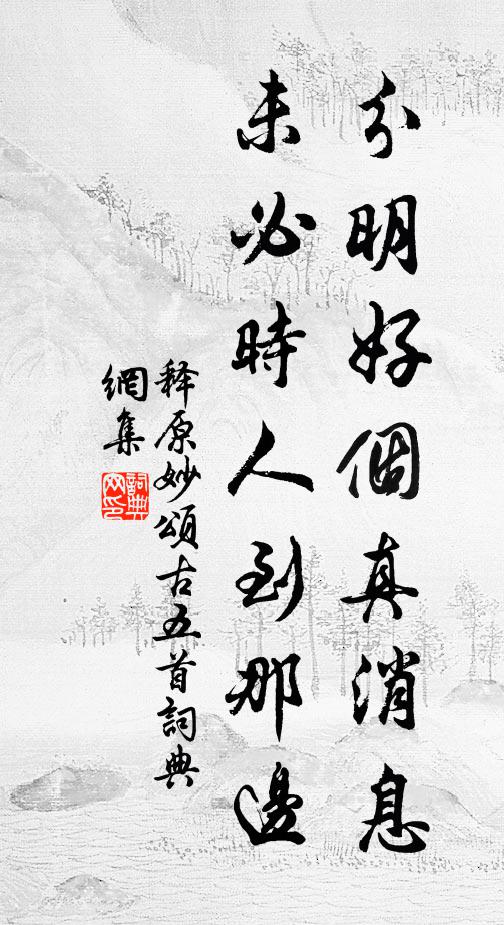 分明好個真消息
未必時人到那邊
释原妙頌古五首詞典
網集
詞典
网印